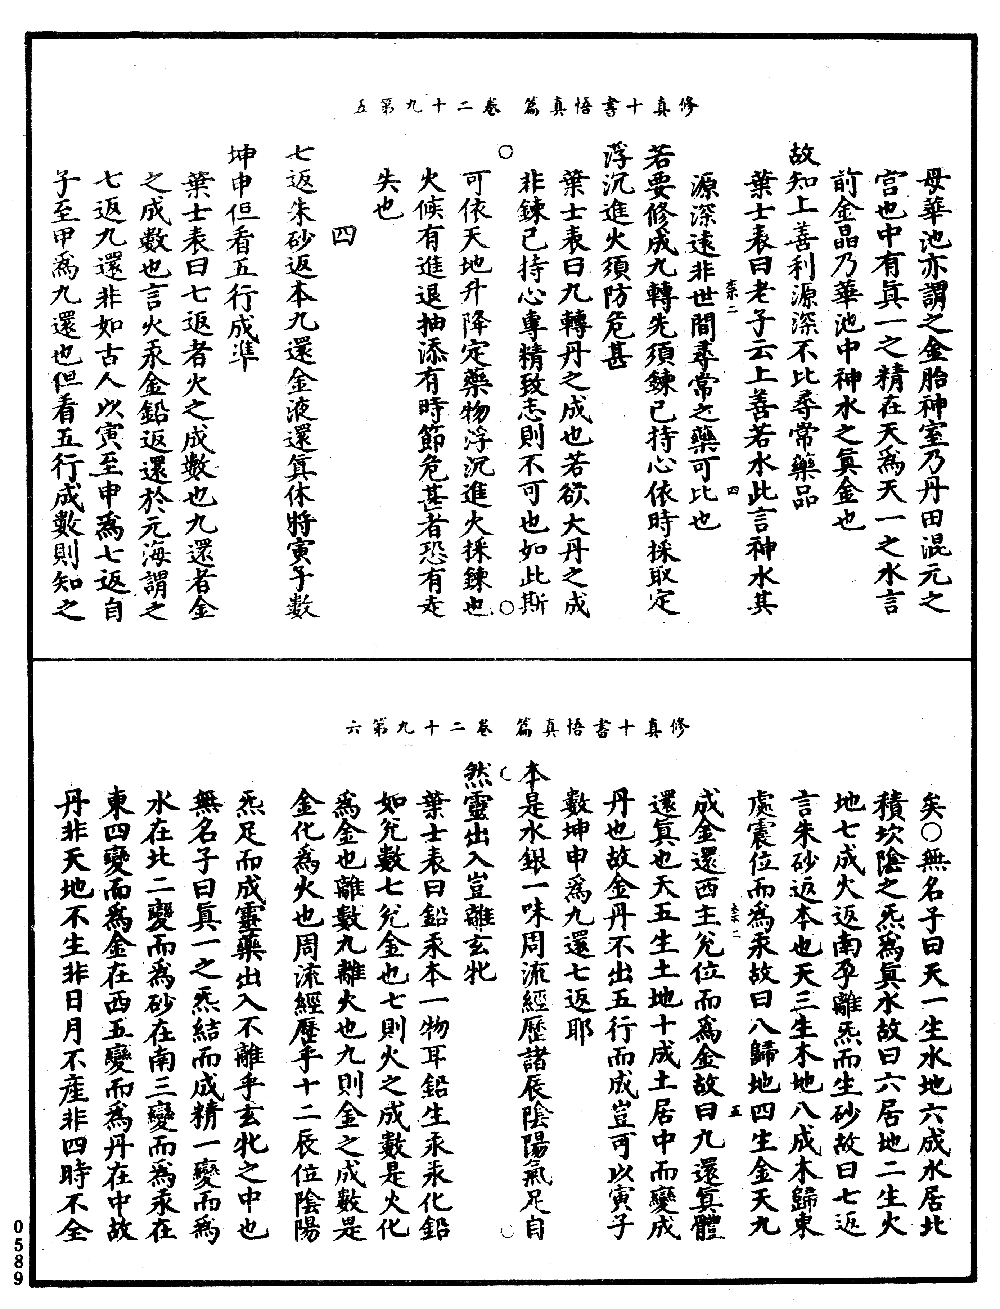 修真十書悟真篇　卷二十九第五
母華池亦謂之金胎神室乃丹田混元之
宫也中有眞一之精在天爲天一之水言
前金晶乃華池中神水之眞金也
故知上善利源深不比尋常藥品
葉士表曰老子云上善若水此言神水其
柰二　四
源深遠非世間尋常之藥可比也
若要修成九轉先須鍊己持心依時採取定
浮沉進火須防危甚
葉士表曰九轉丹之成也若欲大丹之成
非鍊己持心專精致志則不可也如此斯
可依天地升降定藥物浮沉進火採鍊也
火候有進退抽添有時節危甚者恐有走
失也
四
七返朱砂返本九還金液還眞休將寅子數
坤申但看五行成準
葉士表曰七返者火之成數也九還者金
之成數也言火汞金鉛返還於元海謂之
七返九還非如古人以寅至申爲七返自
子至甲爲九還也但看五行成數則知之
修真十書悟真篇　卷二十九第六
矣○無名子曰天一生水地六成水居北
積坎陰之炁爲眞水故曰六居地二生火
地七成火返南孕離炁而生砂故曰七返
言朱砂返本也天三生木地八成木歸東
處震位而爲汞故曰八歸地四生金天九
柰二　五
成金還西主兊位而爲金故曰九還眞體
還眞也天五生土地十成土居中而變成
丹也故金丹不出五行而成豈可以寅子
數坤申爲九還七返耶
本是水銀一味周流經歷諸辰陰陽氣足自
然靈出入豈離玄牝
葉士表曰鉛汞本一物耳鉛生汞汞化鉛
如兊數七兊金也七則火之成數是火化
爲金也離數九離火也九則金之成數是
金化爲火也周流經歷乎十二辰位陰陽
炁足而成靈藥出入不離乎玄牝之中也
無名子曰眞一之炁結而成精一變而爲
水在北二變而爲砂在南三變而爲汞在
東四變而爲金在西五變而爲丹在中故
丹非天地不生非日月不產非四時不全
0589